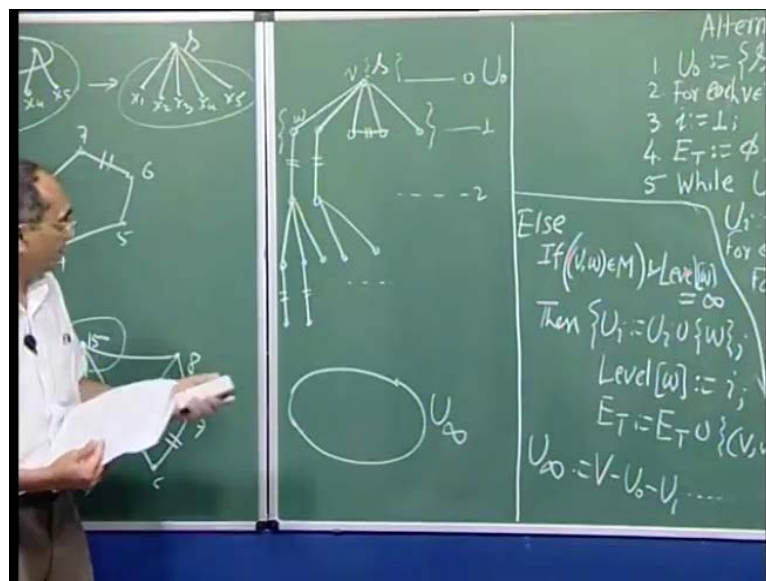 x4 x5 → s
x1 x2 x3 x4 x5
7
6
5
15
8
v {s} 0 U₀
{w } 1
2
....
U∞
Altern
1. U₀ := {s
2. For each ve
3. i := 1;
4. E_T := ϕ
5 While U
Uᵢ
For e
Fo
Else
If((v,w)∈M) & Level[w]
= ∞
Then {Uᵢ := Uᵢ ∪ {w};
Level[w] := i;
E_T := E_T ∪ {(v,w
U∞ := V - U₀ - U₁ ....